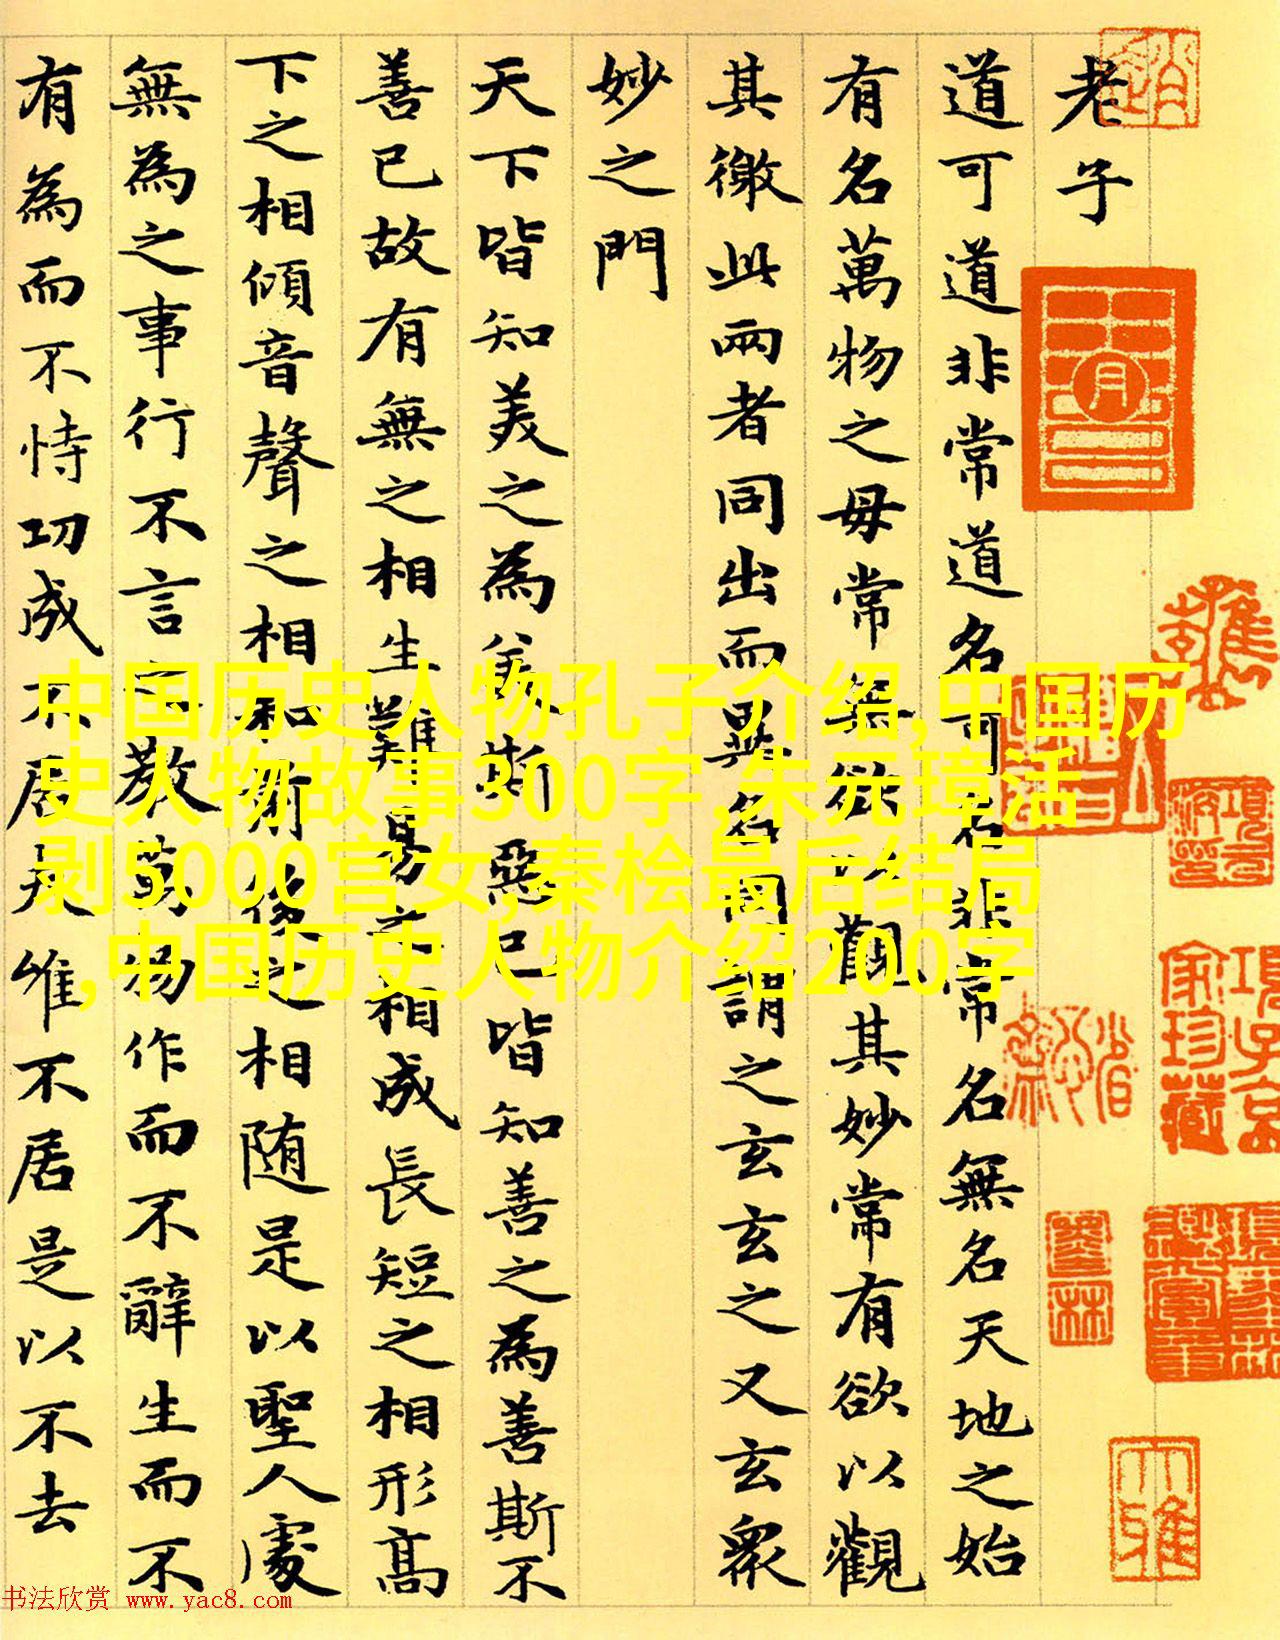 老子
道可道非常道名可名非常名無名天地之始
有名萬物之母常無欲以觀其妙常有欲以觀
其徼此兩者同出而異名同謂之玄玄之又玄衆
妙之門
天下皆知美之為美斯惡已皆知善之為善斯不
善已故有無之相生難易之相成長短之相形髙
下之相傾音聲之相和前後之相随是以聖人處
無為之事行不言之教萬物作而不辭生而不
有為而不恃功成不居夫惟不居是以不去
中国历史人物孔子介绍,中国历
史人物故事300字,朱元璋活
剥5000宫女,秦桧最后结局
,中国历史人物介绍200字
項子京
家珍藏
大雅
书法欣赏 www.yac8.com